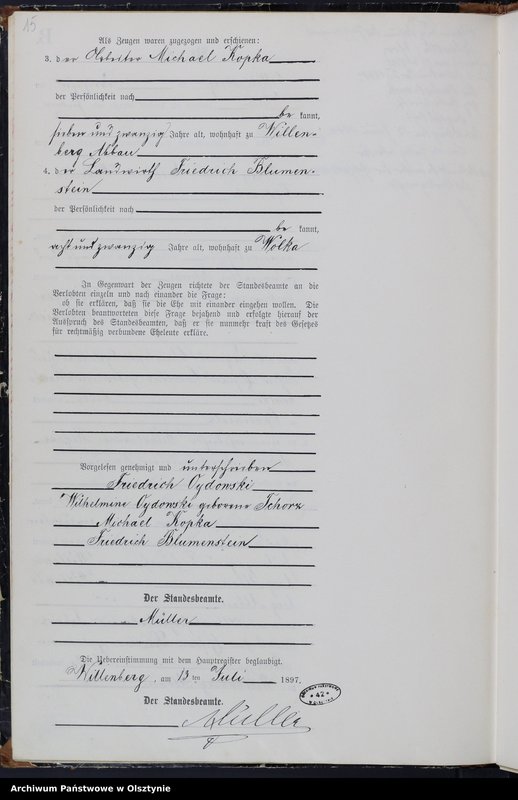 15
Als Zeugen waren zugezogen und erschienen:
3. der Arbeiter Michael Kopka
der Persönlichkeit nach
be kannt,
sieben und zwanzig Jahre alt, wohnhaft zu Willen-
berg Abbau
4. der Landwirth Friedrich Blumen-
stein
der Persönlichkeit nach
be kannt,
acht und zwanzig Jahre alt, wohnhaft zu Wolka
In Gegenwart der Zeugen richtete der Standesbeamte an die
Verlobten einzeln und nach einander die Frage:
ob sie erklären, daß sie die Ehe mit einander eingehen wollen. Die
Verlobten beantworteten diese Frage bejahend und erfolgte hierauf der
Ausspruch des Standesbeamten, daß er sie nunmehr kraft des Gesetzes
für rechtmäßig verbundene Eheleute erkläre.
Vorgelesen genehmigt und unterschrieben
Friedrich Cydonski
Wilhelmine Cydonski geborene Schorz
Michael Kopka
Friedrich Blumenstein
Der Standesbeamte.
Müller
Die Uebereinstimmung mit dem Hauptregister beglaubigt.
Willenberg, am 13 ten Juli 1897.
Der Standesbeamte.
Müller
* 42 *
Archiwum Państwowe w Olsztynie